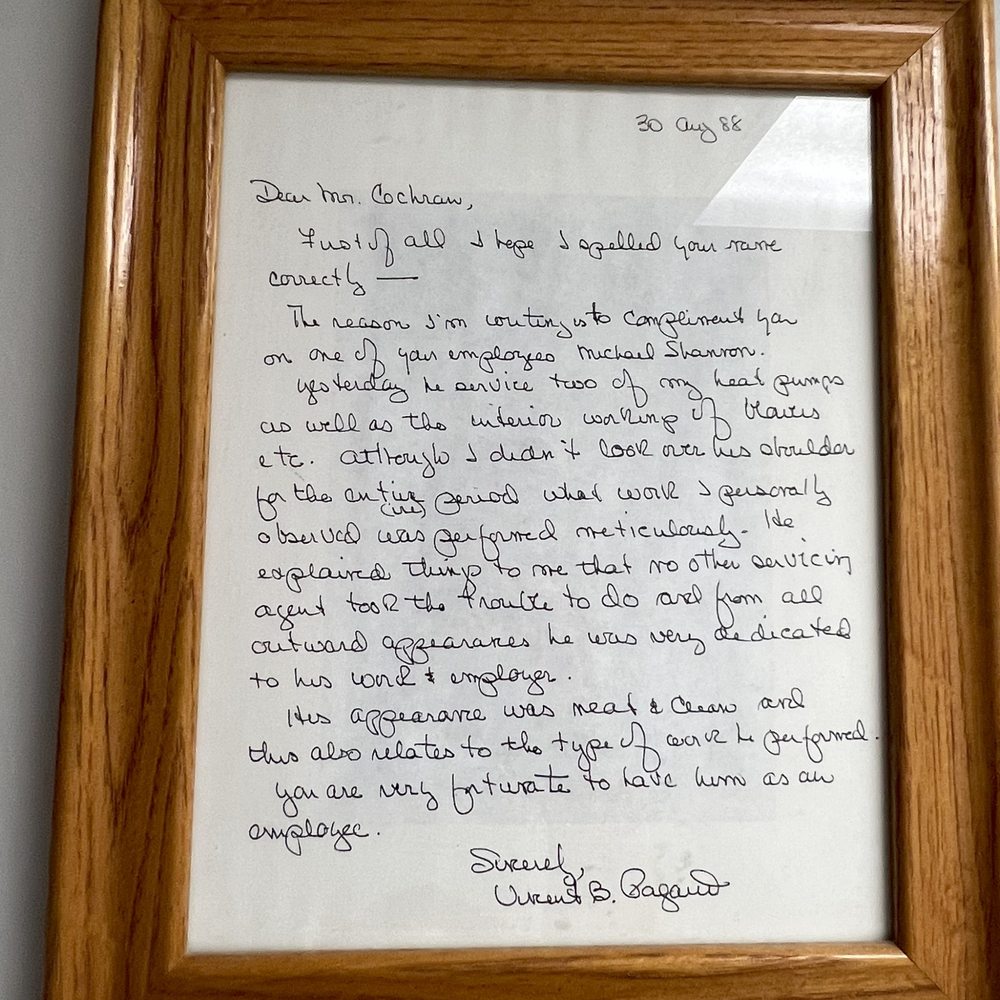 30 Aug 88
Dear Mr. Cochran,
First of all I hope I spelled your name
correctly —
The reason I'm writing is to compliment you
on one of your employees Michael Shannon.
Yesterday he service two of my heat pumps
as well as the interior working of blowers
etc. Although I didn't look over his shoulder
for the entire period what work I personally
(ire)
observed was performed meticulously. He
explained things to me that no other servicing
agent took the trouble to do and from all
outward appearances he was very dedicated
to his work & employer.
His appearance was neat & clean and
this also relates to the type of work he performed.
You are very fortunate to have him as an
employee.
Sincerely,
Vincent B.